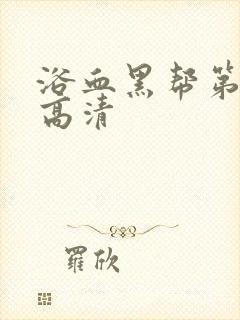 浴血黑帮第
高清
羅欣